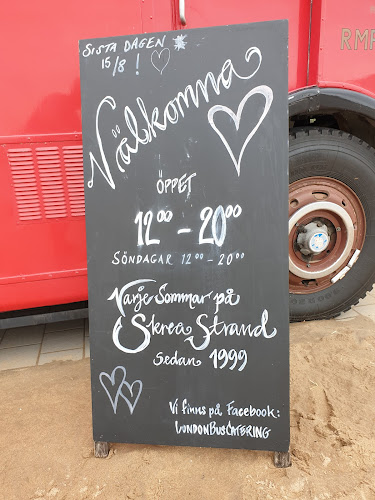 SISTA DAGEN
15/8!
Välkomna
ÖPPET
12⁰⁰ - 20⁰⁰
SÖNDAGAR 12⁰⁰ - 20⁰⁰
Varje Sommar på
Skrea Strand
Sedan 1999
Vi finns på Facebook:
LONDONBUSCATERING
RM